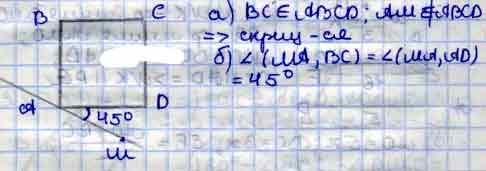 B C
а) BC ∈ ABCD; AM ∉ ABCD
=> скрещ-ся
б) ∠(MA, BC) = ∠(MA, AD)
= 45°
A D
45°
M